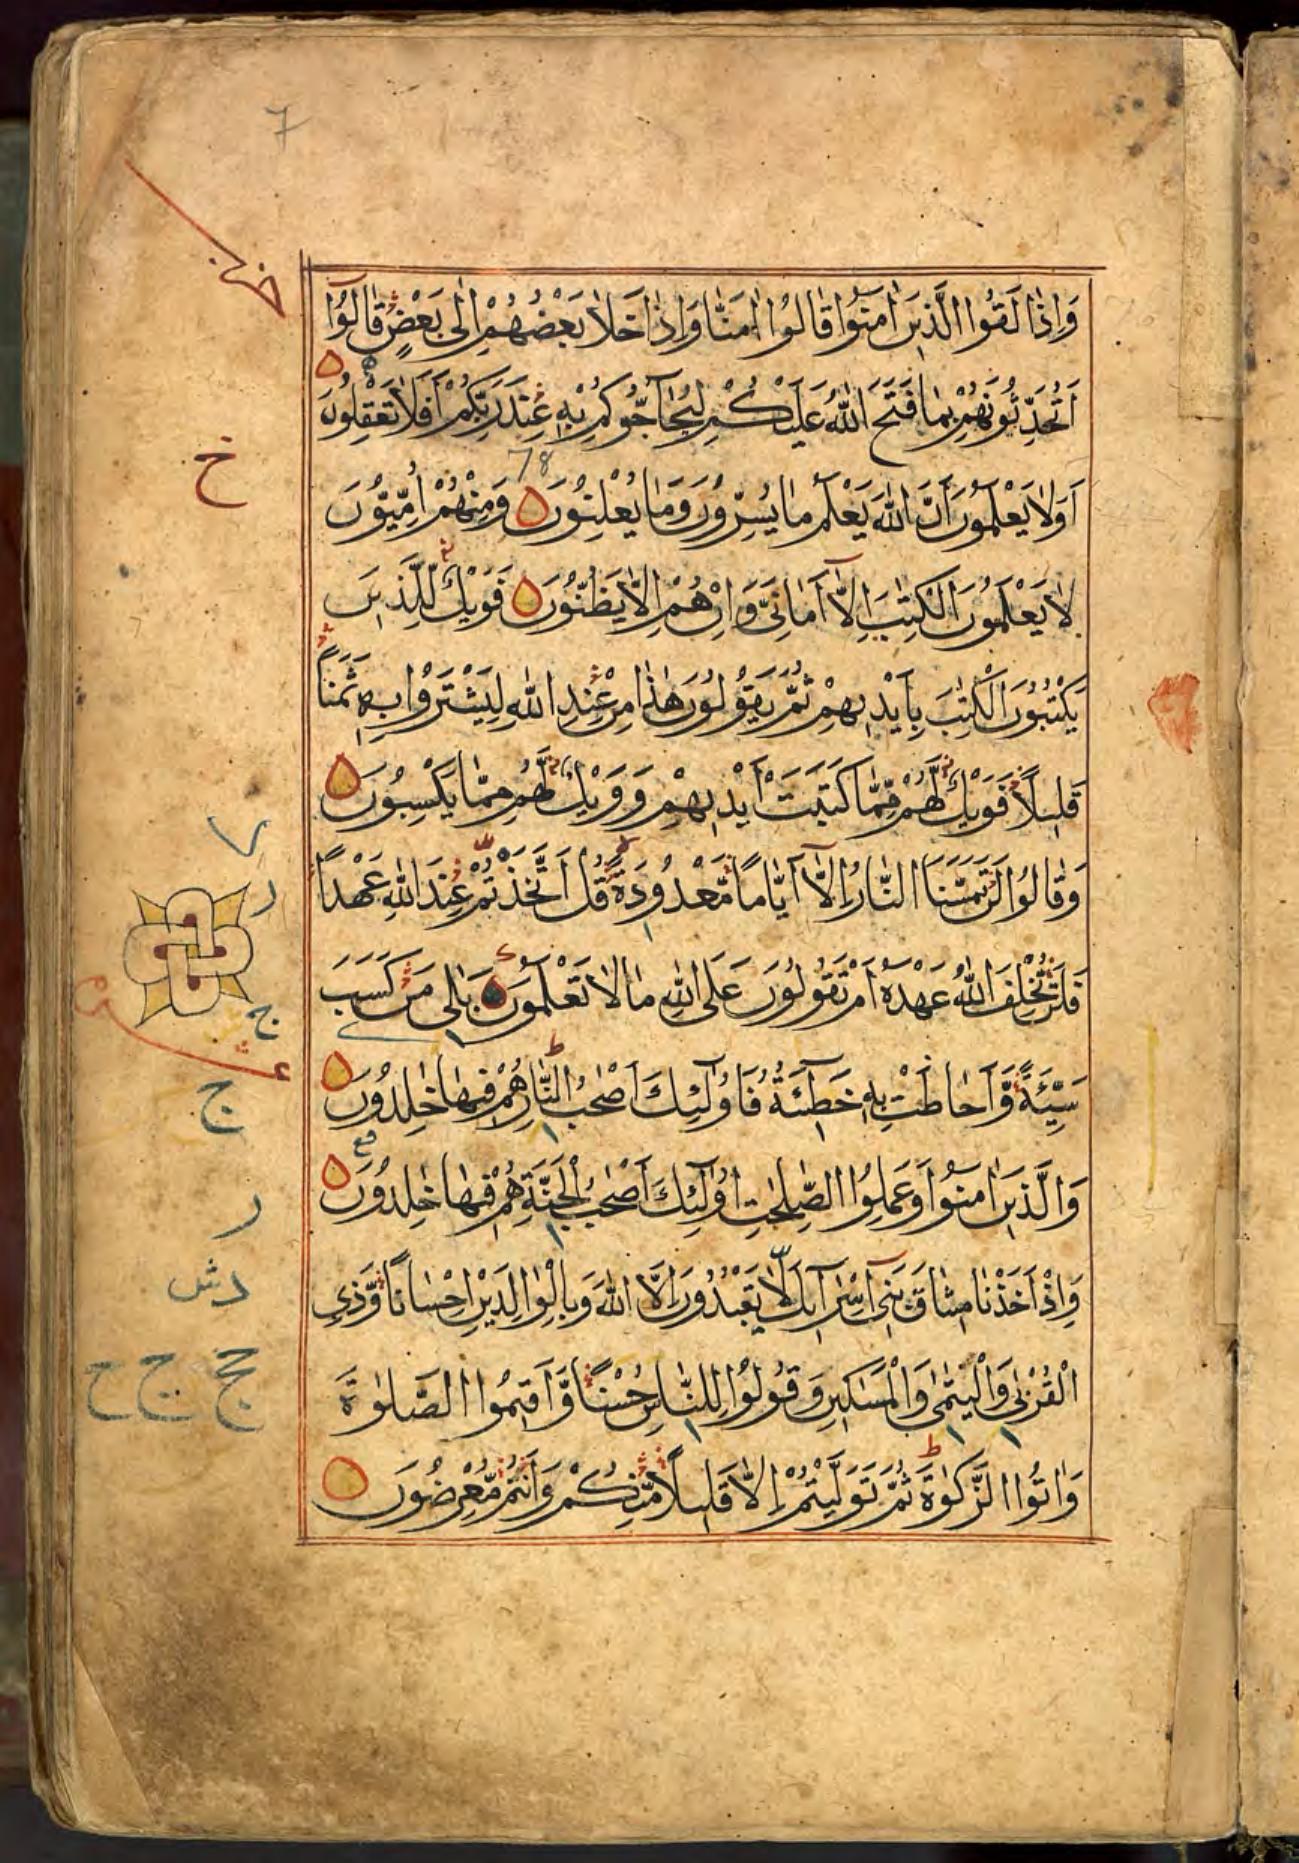 7
وَاِذَا لَقُوا الَّذِينَ اٰمَنُوا قَالُوا اٰمَنَّا وَاِذَا خَلَا بَعْضُهُمْ اِلٰى بَعْضٍ قَالُوٓا
اَتُحَدِّثُونَهُمْ بِمَا فَتَحَ اللّٰهُ عَلَيْكُمْ لِيُحَآجُّوكُمْ بِهٖ عِنْدَ رَبِّكُمْ اَفَلَا تَعْقِلُونَ
78
اَوَلَا يَعْلَمُونَ اَنَّ اللّٰهَ يَعْلَمُ مَا يُسِرُّونَ وَمَا يُعْلِنُونَ وَمِنْهُمْ اُمِّيُّونَ
لَا يَعْلَمُونَ الْكِتٰبَ اِلَّآ اَمَانِيَّ وَاِنْ هُمْ اِلَّا يَظُنُّونَ فَوَيْلٌ لِلَّذِينَ
يَكْتُبُونَ الْكِتٰبَ بِاَيْدِيهِمْ ثُمَّ يَقُولُونَ هٰذَا مِنْ عِنْدِ اللّٰهِ لِيَشْتَرُوا بِهٖ ثَمَنًا
قَلِيلًا فَوَيْلٌ لَّهُمْ مِّمَّا كَتَبَتْ اَيْدِيهِمْ وَوَيْلٌ لَّهُمْ مِمَّا يَكْسِبُونَ
وَقَالُوا لَنْ تَمَسَّنَا النَّارُ اِلَّآ اَيَّامًا مَّعْدُودَةً قُلْ اَتَّخَذْتُمْ عِنْدَ اللّٰهِ عَهْدًا
فَلَنْ يُّخْلِفَ اللّٰهُ عَهْدَهٗٓ اَمْ تَقُولُونَ عَلَى اللّٰهِ مَا لَا تَعْلَمُونَ بَلٰى مَنْ كَسَبَ
سَيِّئَةً وَّاَحَاطَتْ بِهٖ خَطِٓيئَتُهُ فَاُولٰٓئِكَ اَصْحٰبُ النَّارِ هُمْ فِيهَا خٰلِدُونَ
وَالَّذِينَ اٰمَنُوا وَعَمِلُوا الصّٰلِحٰتِ اُولٰٓئِكَ اَصْحٰبُ الْجَنَّةِ هُمْ فِيهَا خٰلِدُونَ
وَاِذْ اَخَذْنَا مِيثَاقَ بَنِٓي اِسْرَآئِلَ لَا تَعْبُدُونَ اِلَّا اللّٰهَ وَبِالْوَالِدَيْنِ اِحْسَانًا وَّذِي
الْقُرْبٰى وَالْيَتٰمٰى وَالْمَسٰكِينِ وَقُولُوا لِلنَّاسِ حُسْنًا وَّاَقِيمُوا الصَّلٰوةَ
وَاٰتُوا الزَّكٰوةَ ثُمَّ تَوَلَّيْتُمْ اِلَّا قَلِيلًا مِّنْكُمْ وَاَنْتُمْ مُّعْرِضُونَ
خ
ر
ج
ج
ر
دش
ج ج ح